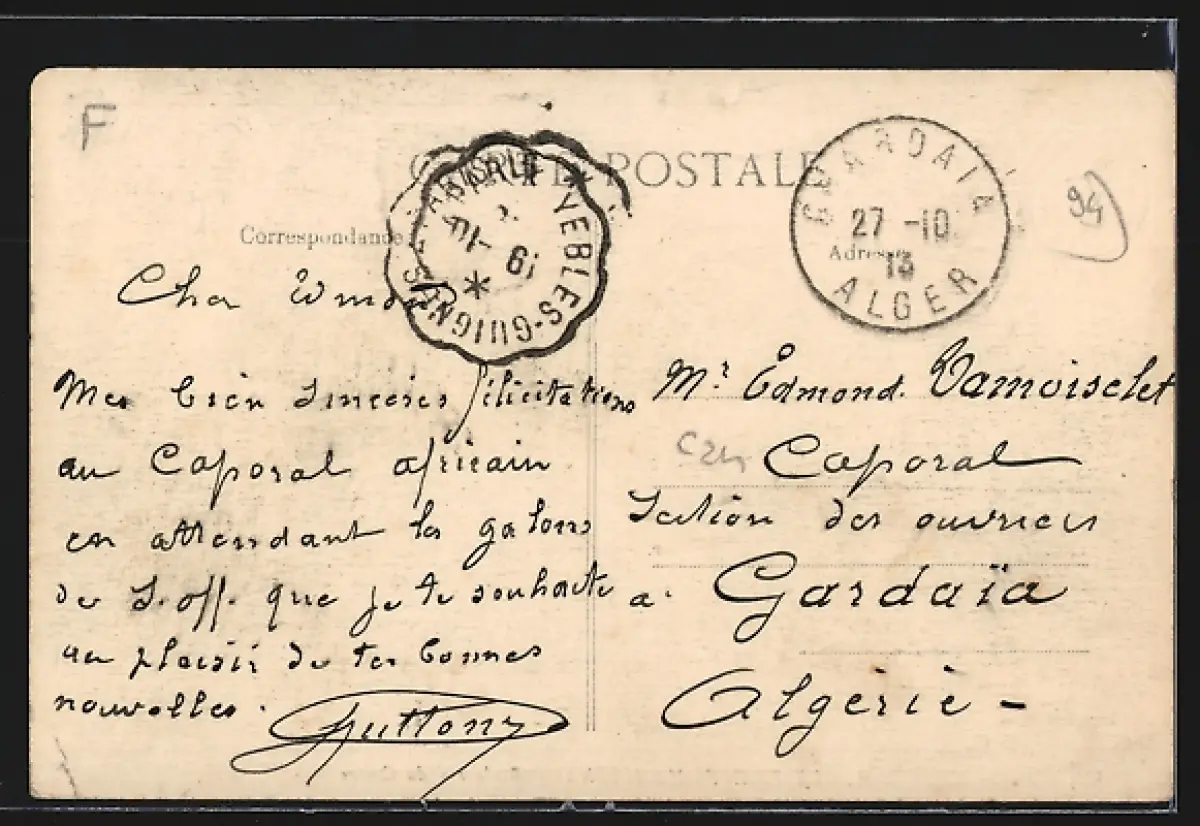 F
CARTE POSTALE
GHARDAIA
27 -10
13
ALGER
94
YEBLES-GUIGNES
19 -10
*
Correspondance
Adresse
Cher Edmond
Mes bien sincères félicitations
au Caporal africain
en attendant les galons
de S.off. que je te souhaite
au plaisir de tes bonnes
nouvelles.
Mr. Edmond Damoiselet
Caporal
Section des ouvriers
à Gardaïa
Algérie -